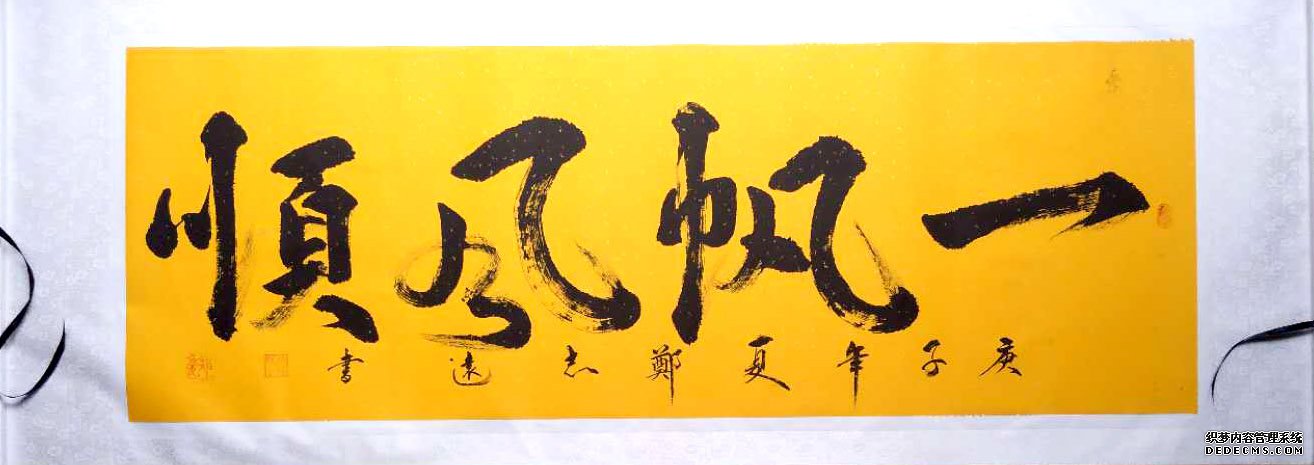 一帆风順
庚子年夏鄭志遠書
织梦内容管理系统
DEDECMS.COM